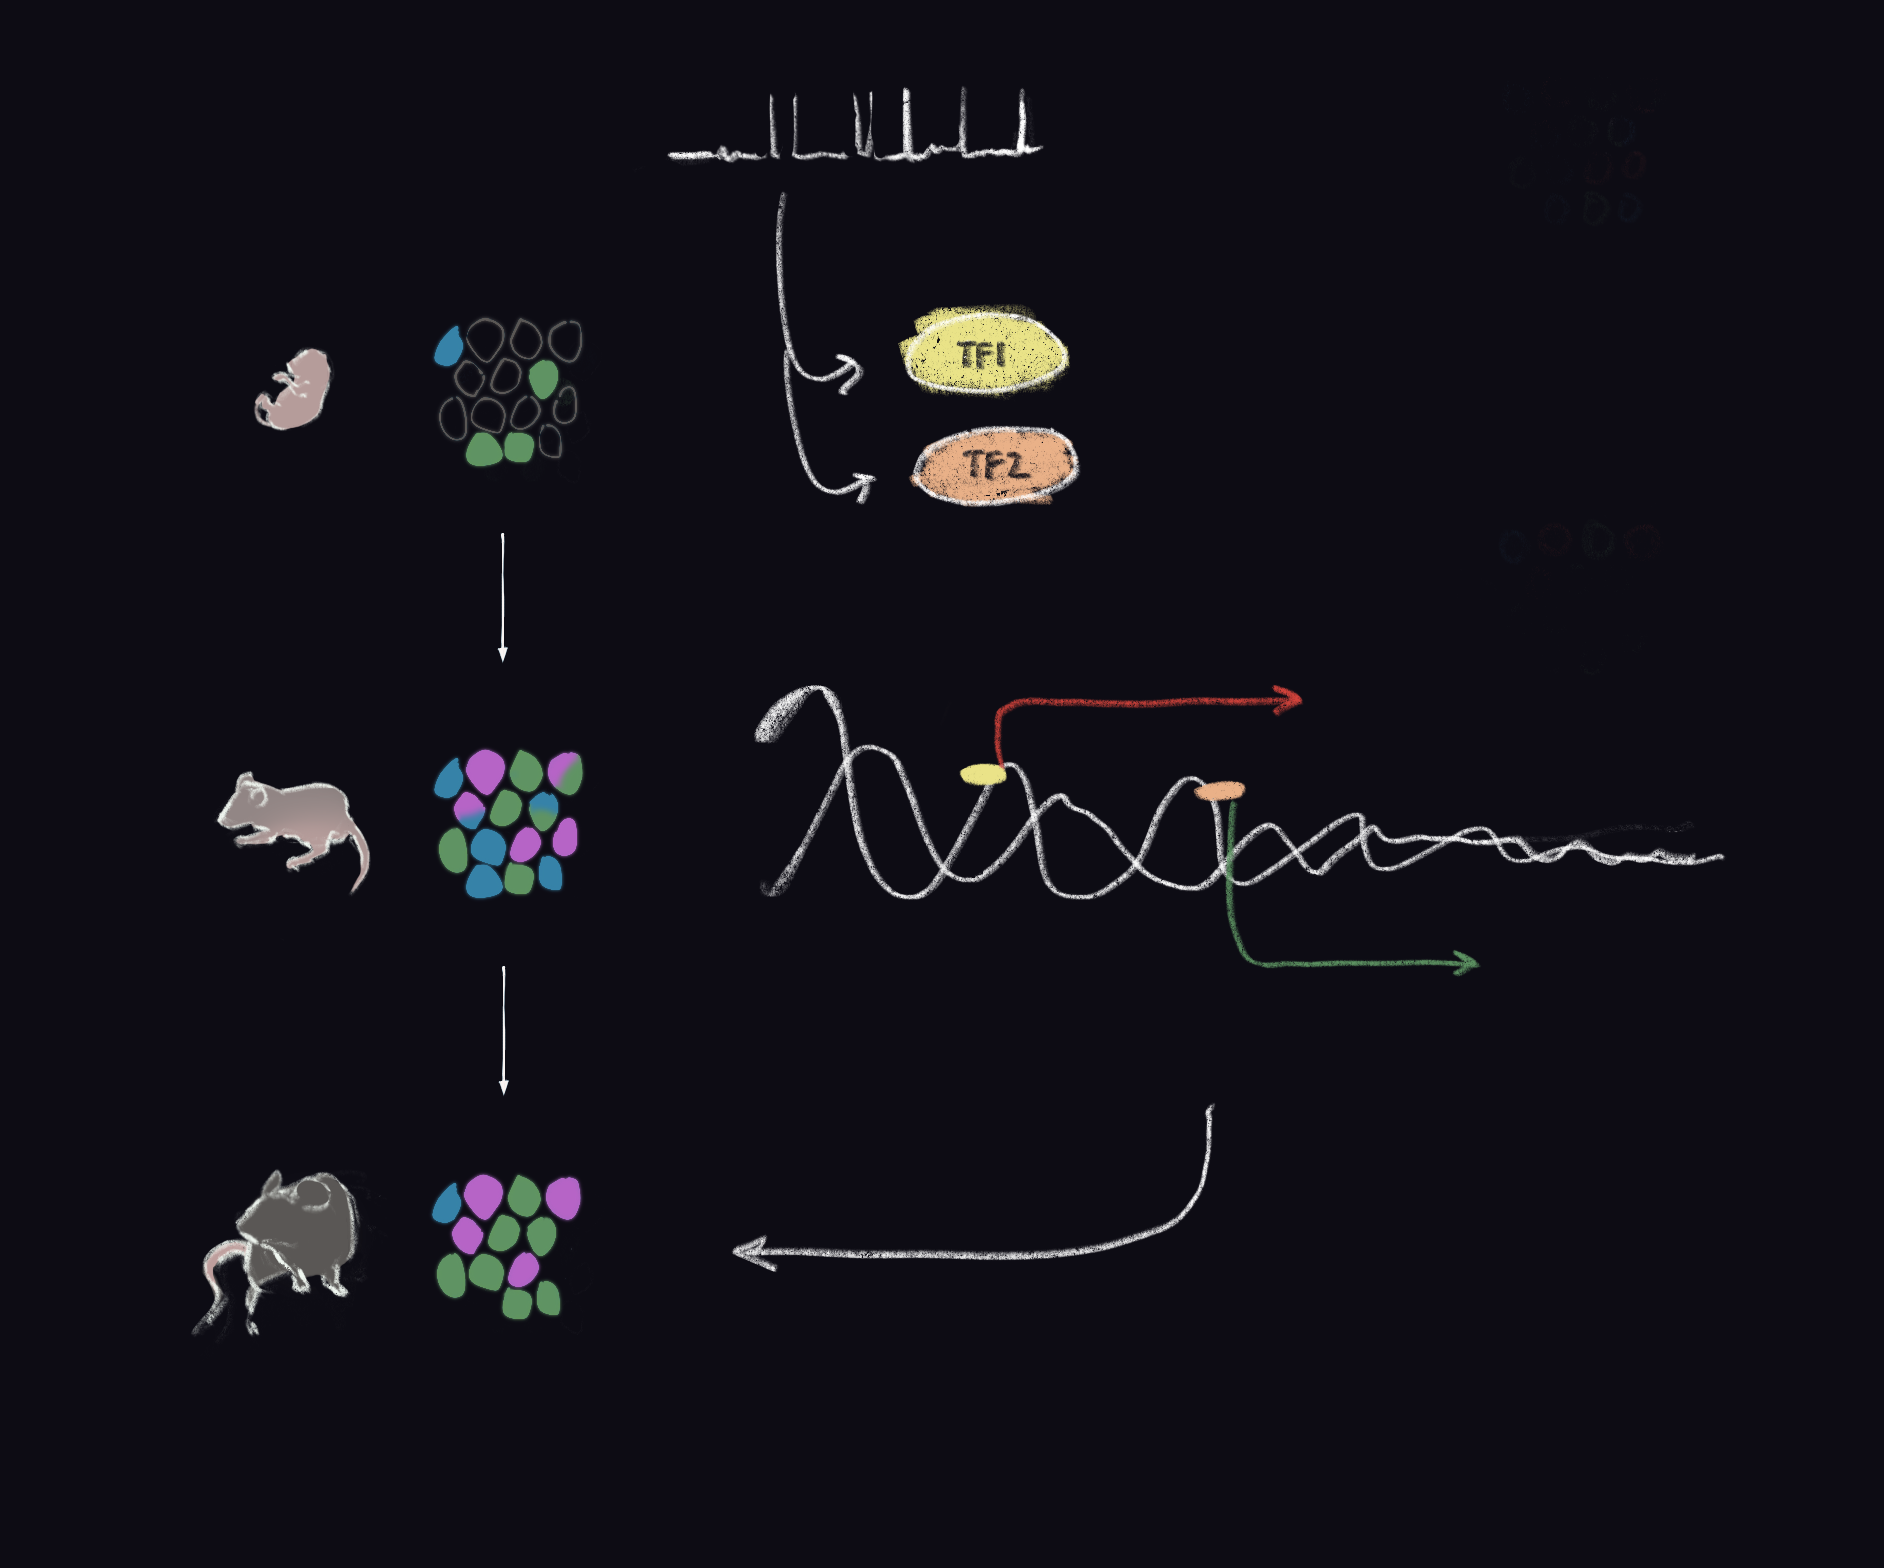 TF1
TF2